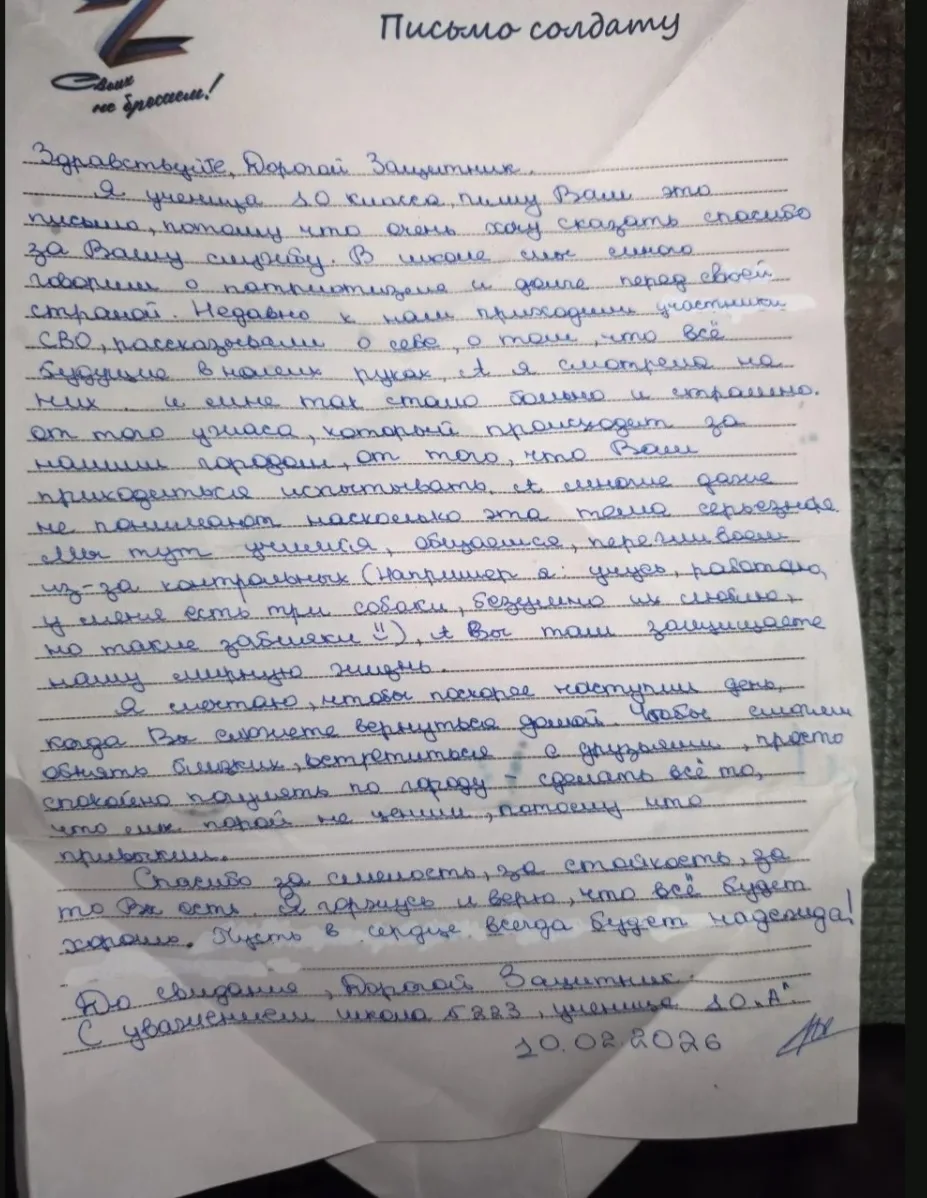 Письмо солдату
Своих
не бросаем!
Здравствуйте, Дорогой Защитник.
Я ученица 10 класса, пишу Вам это
письмо, потому что очень хочу сказать спасибо
за Вашу службу. В школе мы много
говорим о патриотизме и долге перед своей
страной. Недавно к нам приходили участники
СВО, рассказывали о себе, о том, что всё
будущие в наших руках, А я смотрела на
них и мне так стало больно и страшно.
от того ужаса, который происходит за
нашим городом, от того, что Вам
приходиться испытывать. А многие даже
не понимают насколько эта тема серьезная.
Мы тут учимся, общаемся, переживаем
из-за контрольных (Например я: учусь, работаю,
у меня есть три собаки, безумно их люблю,
но такие забияки), А Вы там защищаете
нашу мирную жизнь.
Я мечтаю, чтобы поскорее наступил день,
когда Вы сможете вернуться домой. Чтобы смогли
обнять близких, встретиться с друзьями, просто
спокойно погулять по городу сделать всё то,
что мы порой не ценим, потому что
привыкли.
Спасибо за смелость, за стойкость, за
то Вы есть. Я горжусь и верю, что всё будет
хорошо. Пусть в сердце всегда будет надежда!
До свидания, Дорогой Защитник.
С уважением школа 223, ученица 10 „А"
10.02.2026